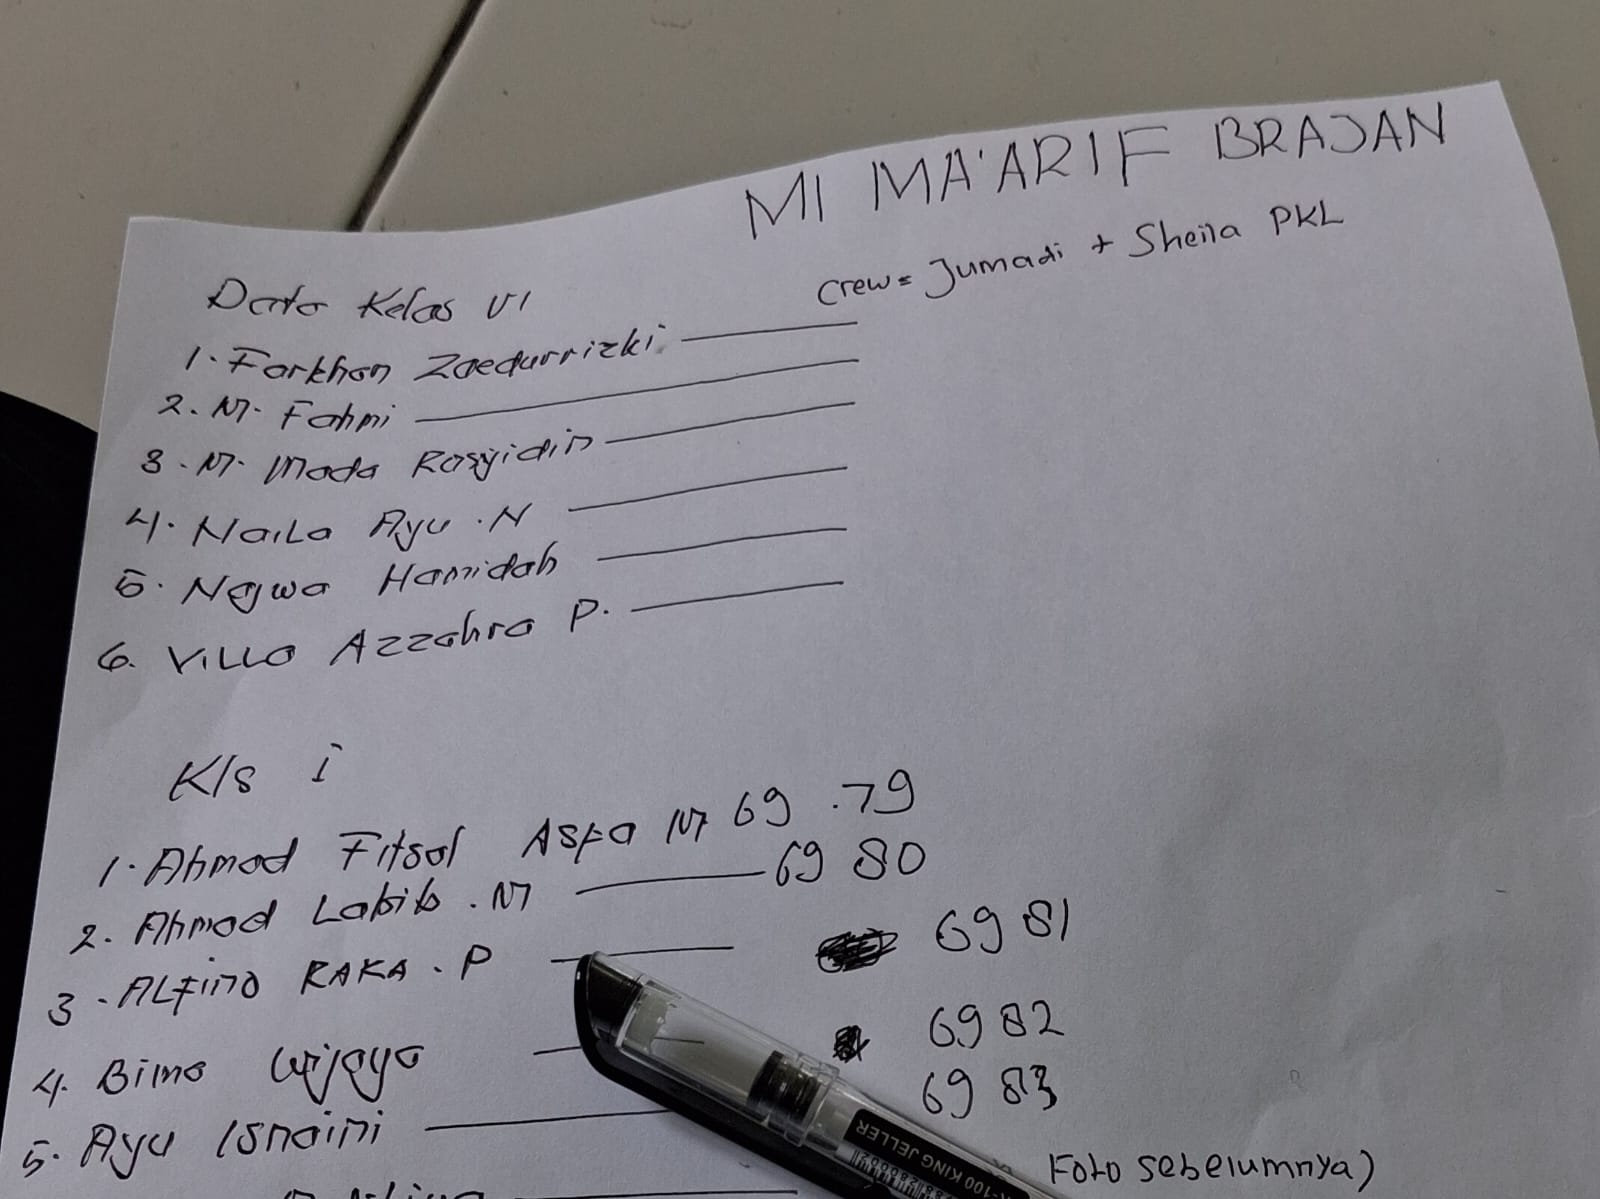 MI MA'ARIF BRAJAN
Crew = Jumadi + Sheila PKL
Data Kelas VI
1. Farkhan Zaedurrizki
2. M. Fahmi
3. M. Mada Rosyidin
4. Naila Ayu .N
5. Najwa Hamidah
6. Villa Azzahra P.
Kls i
1. Ahmad Fitsal Asfa M 69 .79
2. Ahmad Labib . M 69 80
3. ALFINO RAKA . P 69 81
4. Bima Wijaya 69 82
5. Ayu Isnaini 69 83
Foto sebelumnya)
-100 KING JELLER